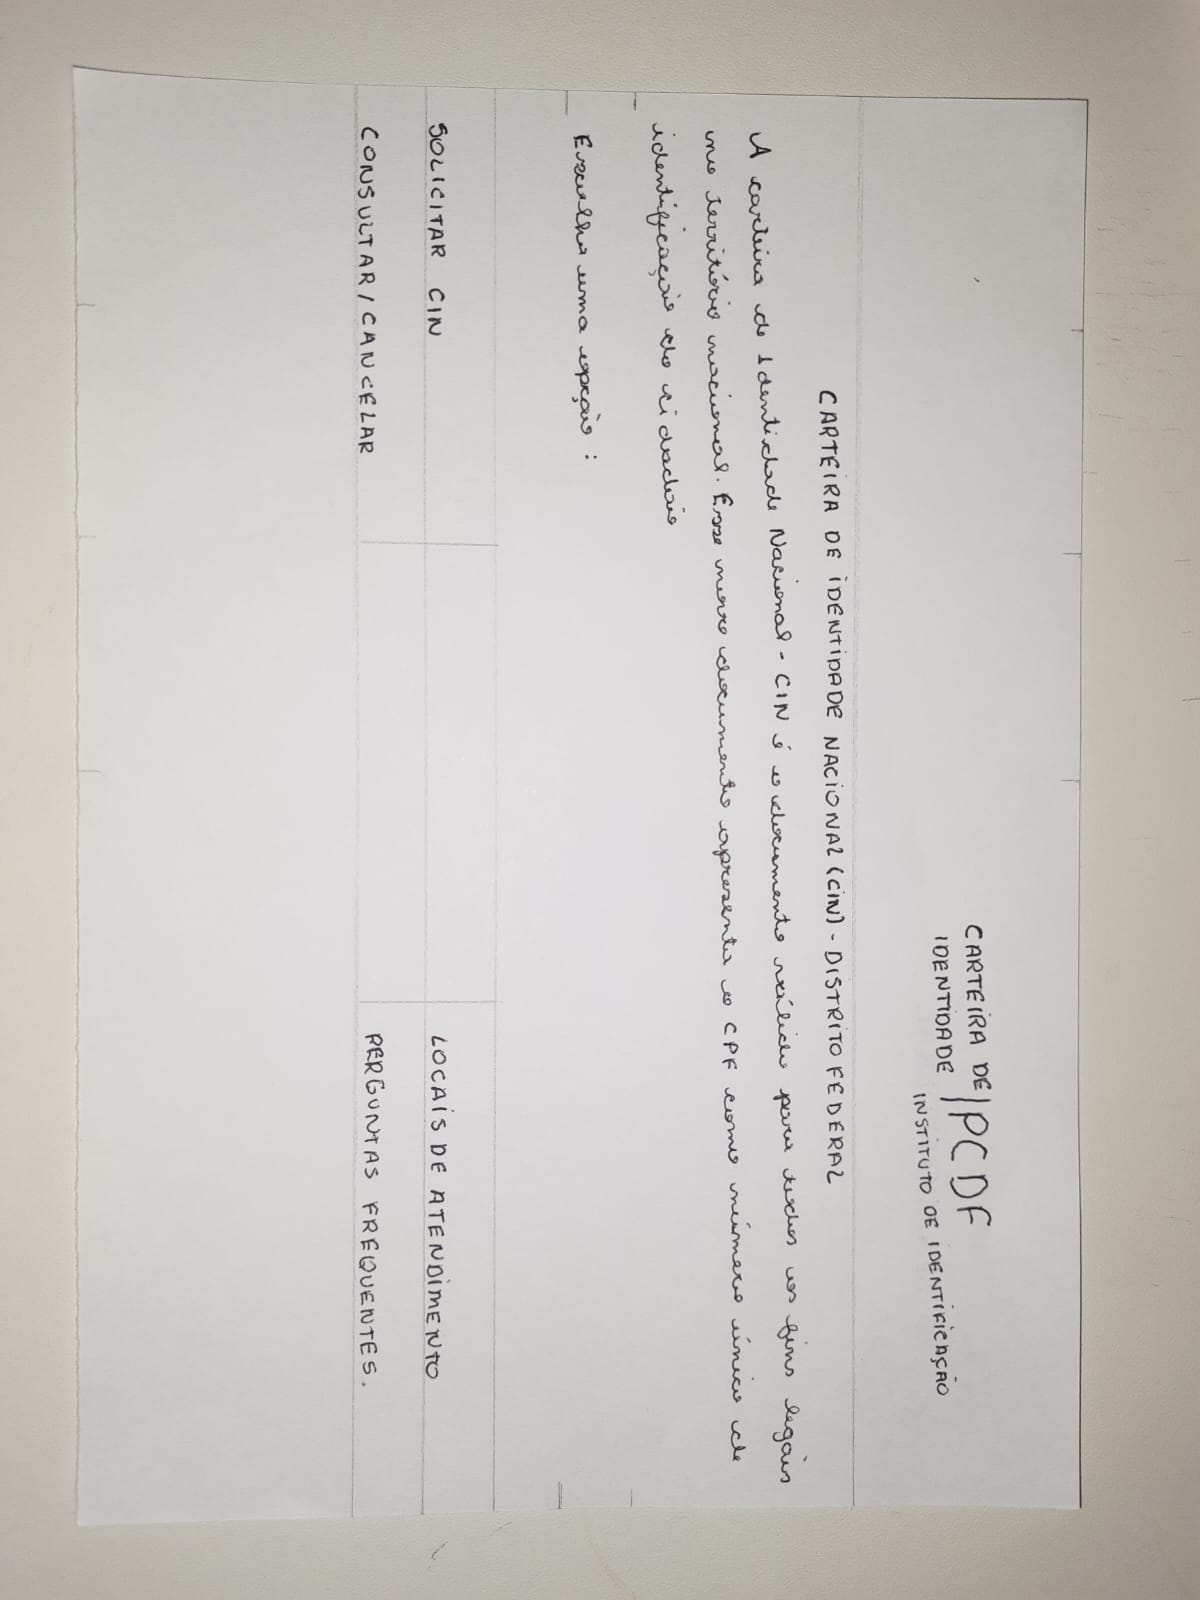 CARTEIRA DE
IDENTIDADE
|PCDF
INSTITUTO DE IDENTIFICAÇÃO
CARTEIRA DE IDENTIDADE NACIONAL (CIN) - DISTRITO FEDERAL
A carteira de Identidade Nacional - CIN é o documento válido para todos os fins legais
no território nacional. Esse novo documento apresenta o CPF como número único de
identificação do cidadão
Escolha uma opção :
SOLICITAR CIN
LOCAIS DE ATENDIMENTO
CONSULTAR/CANCELAR
PERGUNTAS FREQUENTES.